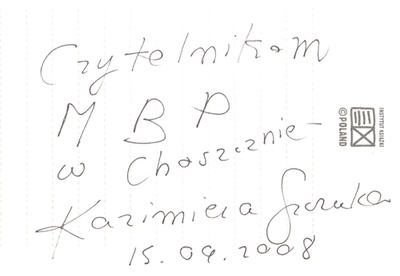 Czytelnikom
M B P
w Choszcznie
Kazimiera Szczuka
15.09.2008
INSTYTUT KSIĄŻKI
©POLAND